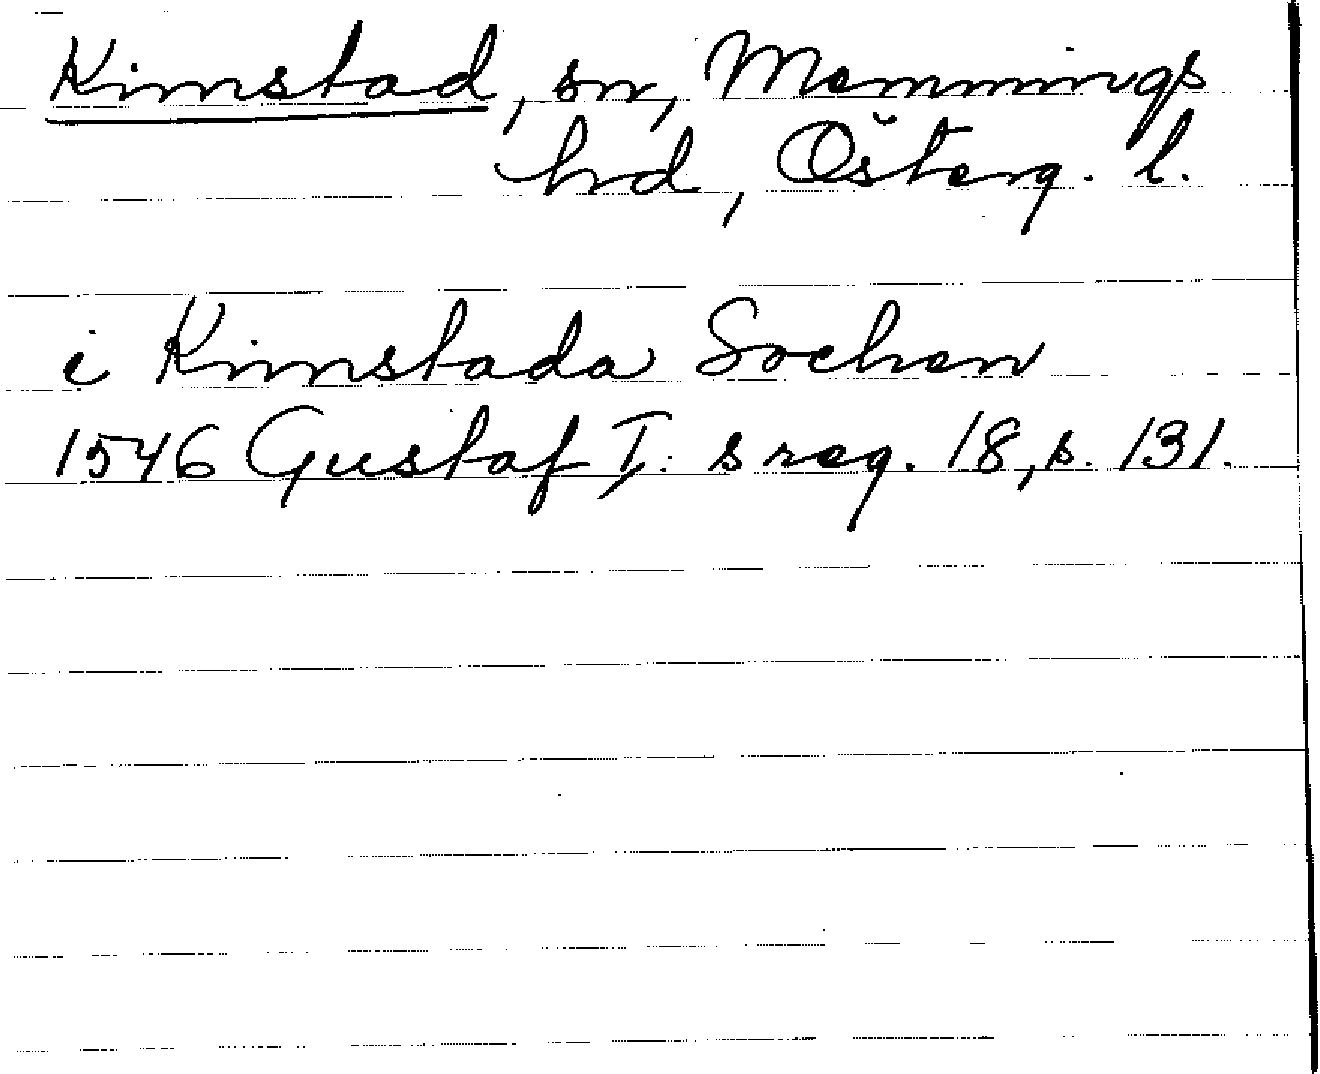 Kimstad, sn, Memmings
hrd, Österg. l.
i Kimstada Sochen
1546 Gustaf I: s reg. 18, s. 131.